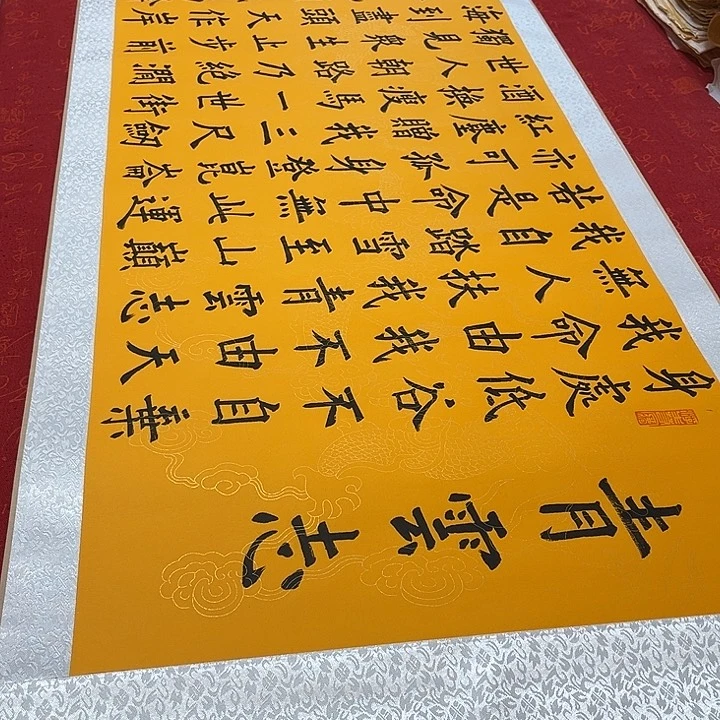 青雲志
身處低谷不自棄
我命由我不由天
無人扶我青雲志
我自踏雪至山巔
若是命中無此運
亦可孤身登崑崙
紅塵贈我三尺劍
酒瘦馬一世
世人朝路乃絕澗
獨見眾生止步前
海到盡頭天作岸